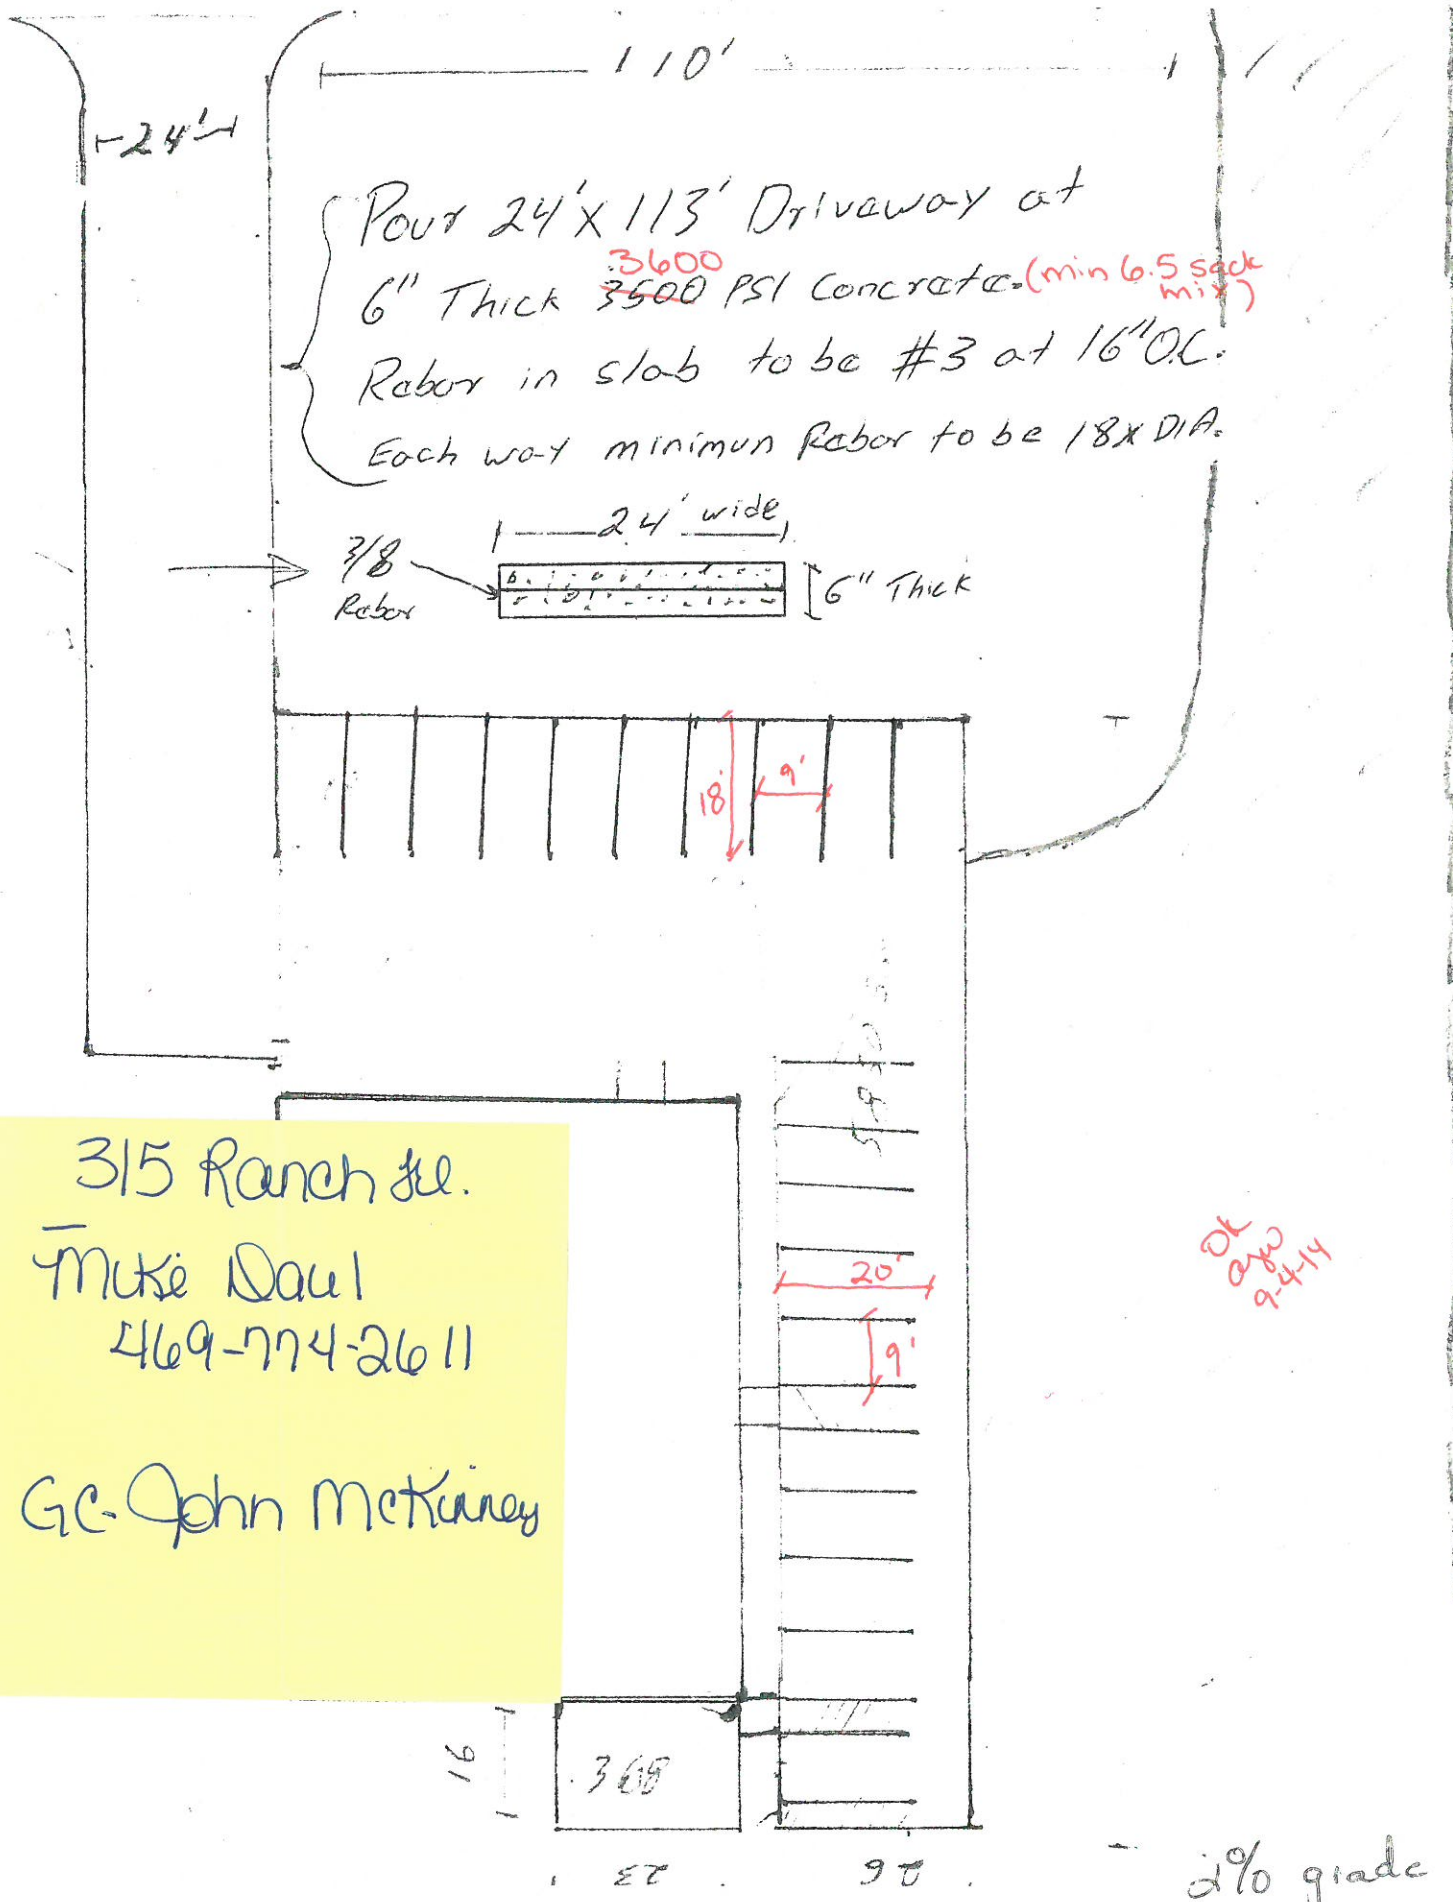 110'
24'
Pour 24' X 113' Driveway at
3600
6" Thick 3500 PSI Concrete. (min 6.5 sack
mix)
Rebar in slab to be #3 at 16" O.C.
Each way minimun Rebar to be 18X DIA.
24' wide
3/8
Rebar
6" Thick
18'
9'
315 Ranch
Mike Daul
469-774-2611
GC- John McKinney
20'
9'
OK
9-4-14
16
368
23
26
2% grade